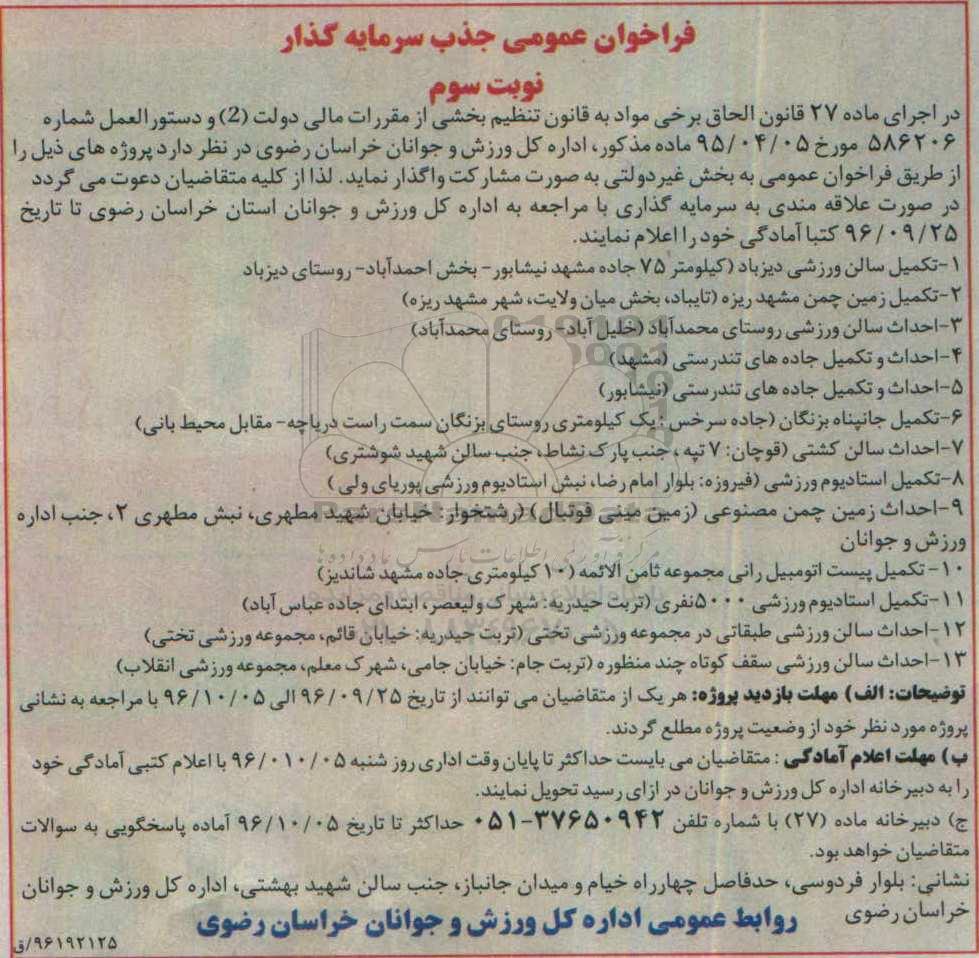 فراخوان عمومی جذب سرمایه گذار
نوبت سوم
در اجرای ماده ۲۷ قانون الحاق برخی مواد به قانون تنظیم بخشی از مقررات مالی دولت (2) و دستورالعمل شماره
۵۸۶۲۰۶ مورخ ۹۵/۰۴/۰۵ ماده مذکور، اداره کل ورزش و جوانان خراسان رضوی در نظر دارد پروژه های ذیل را
از طریق فراخوان عمومی به بخش غیردولتی به صورت مشارکت واگذار نماید. لذا از کلیه متقاضیان دعوت می گردد
در صورت علاقه مندی به سرمایه گذاری با مراجعه به اداره کل ورزش و جوانان استان خراسان رضوی تا تاریخ
۹۶/۰۹/۲۵ کتبا آمادگی خود را اعلام نمایند.
۱-تکمیل سالن ورزشی دیزباد (کیلومتر ۷۵ جاده مشهد نیشابور- بخش احمدآباد- روستای دیزباد
۲-تکمیل زمین چمن مشهد ریزه (تایباد، بخش میان ولایت، شهر مشهد ریزه)
۳-احداث سالن ورزشی روستای محمدآباد (خلیل آباد- روستای محمدآباد)
۴-احداث و تکمیل جاده های تندرستی (مشهد)
۵-احداث و تکمیل جاده های تندرستی (نیشابور)
۶-تکمیل جانپناه بزنگان (جاده سرخس : یک کیلومتری روستای بزنگان سمت راست دریاچه- مقابل محیط بانی)
۷-احداث سالن کشتی (قوچان: ۷ تپه ، جنب پارک نشاط، جنب سالن شهید شوشتری)
۸-تکمیل استادیوم ورزشی (فیروزه: بلوار امام رضا، نبش استادیوم ورزشی پوریای ولی )
۹-احداث زمین چمن مصنوعی (زمین مینی فوتبال) (رشتخوار: خیابان شهید مطهری، نبش مطهری ۲، جنب اداره
ورزش و جوانان
۱۰- تکمیل پیست اتومبیل رانی مجموعه ثامن الائمه (۱۰ کیلومتری جاده مشهد شاندیز)
۱۱-تکمیل استادیوم ورزشی ۵۰۰۰نفری (تربت حیدریه: شهرک ولیعصر، ابتدای جاده عباس آباد)
۱۲-احداث سالن ورزشی طبقاتی در مجموعه ورزشی تختی (تربت حیدریه: خیابان قائم، مجموعه ورزشی تختی)
۱۳-احداث سالن ورزشی سقف کوتاه چند منظوره (تربت جام: خیابان جامی، شهرک معلم، مجموعه ورزشی انقلاب)
توضیحات: الف) مهلت بازدید پروژه: هر یک از متقاضیان می توانند از تاریخ ۹۶/۰۹/۲۵ الی ۹۶/۱۰/۰۵ با مراجعه به نشانی
پروژه مورد نظر خود از وضعیت پروژه مطلع گردند.
ب) مهلت اعلام آمادگی : متقاضیان می بایست حداکثر تا پایان وقت اداری روز شنبه ۹۶/۰۱۰/۰۵ با اعلام کتبی آمادگی خود
را به دبیرخانه اداره کل ورزش و جوانان در ازای رسید تحویل نمایند.
ج) دبیرخانه ماده (۲۷) با شماره تلفن ۳۷۶۵۰۹۴۲-۰۵۱ حداکثر تا تاریخ ۹۶/۱۰/۰۵ آماده پاسخگویی به سوالات
متقاضیان خواهد بود.
نشانی: بلوار فردوسی، حدفاصل چهارراه خیام و میدان جانباز، جنب سالن شهید بهشتی، اداره کل ورزش و جوانان
خراسان رضوی
روابط عمومی اداره کل ورزش و جوانان خراسان رضوی
۹۶۱۹۲۱۲۵/ق